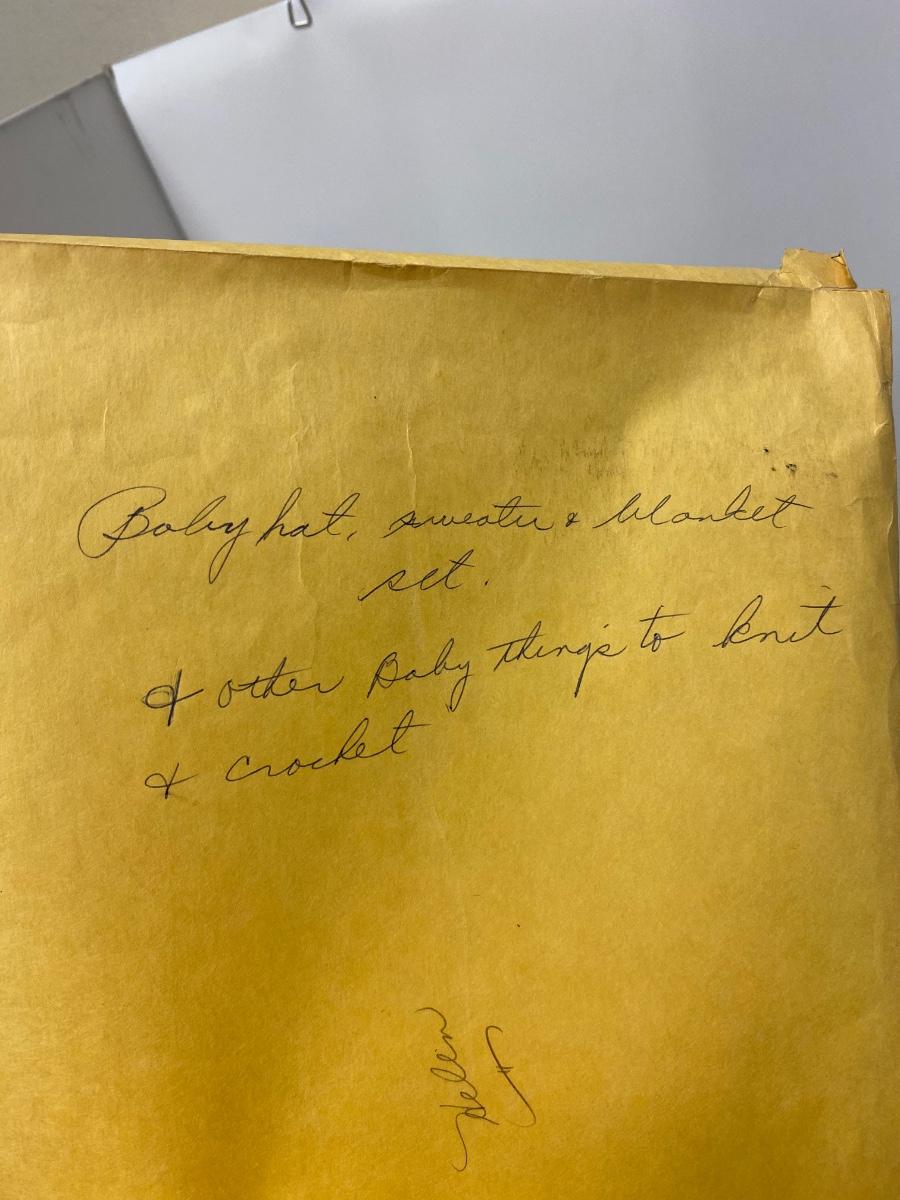 Baby hat, sweater & blanket
set.
& other Baby things to knit
& crochet
Helen